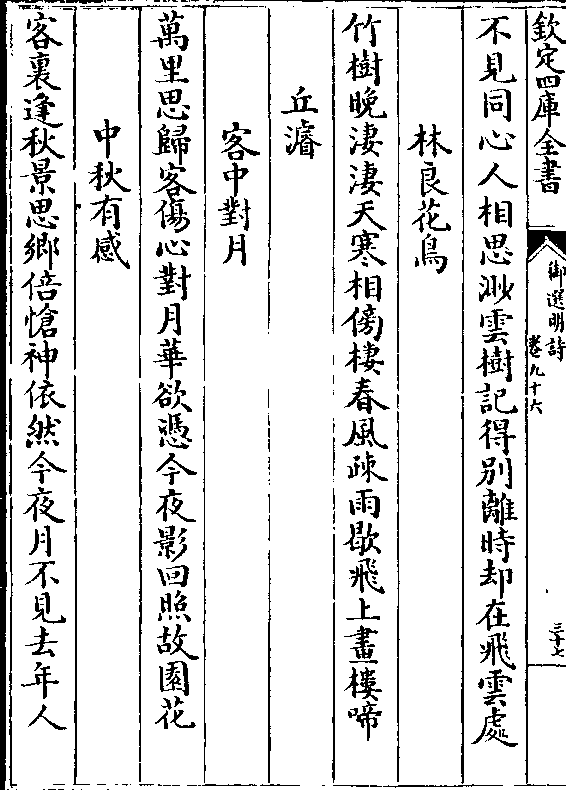 欽定四庫全書
御選明詩
卷九十六
三十七
不見同心人相思渺雲樹記得別離時却在飛雲處
林良花鳥
竹樹晚淒淒天寒相傍棲春風疎雨歇飛上畫樓啼
丘濬
客中對月
萬里思歸客傷心對月華欲憑今夜影回照故園花
中秋有感
客裏逢秋景思鄉倍愴神依然今夜月不見去年人